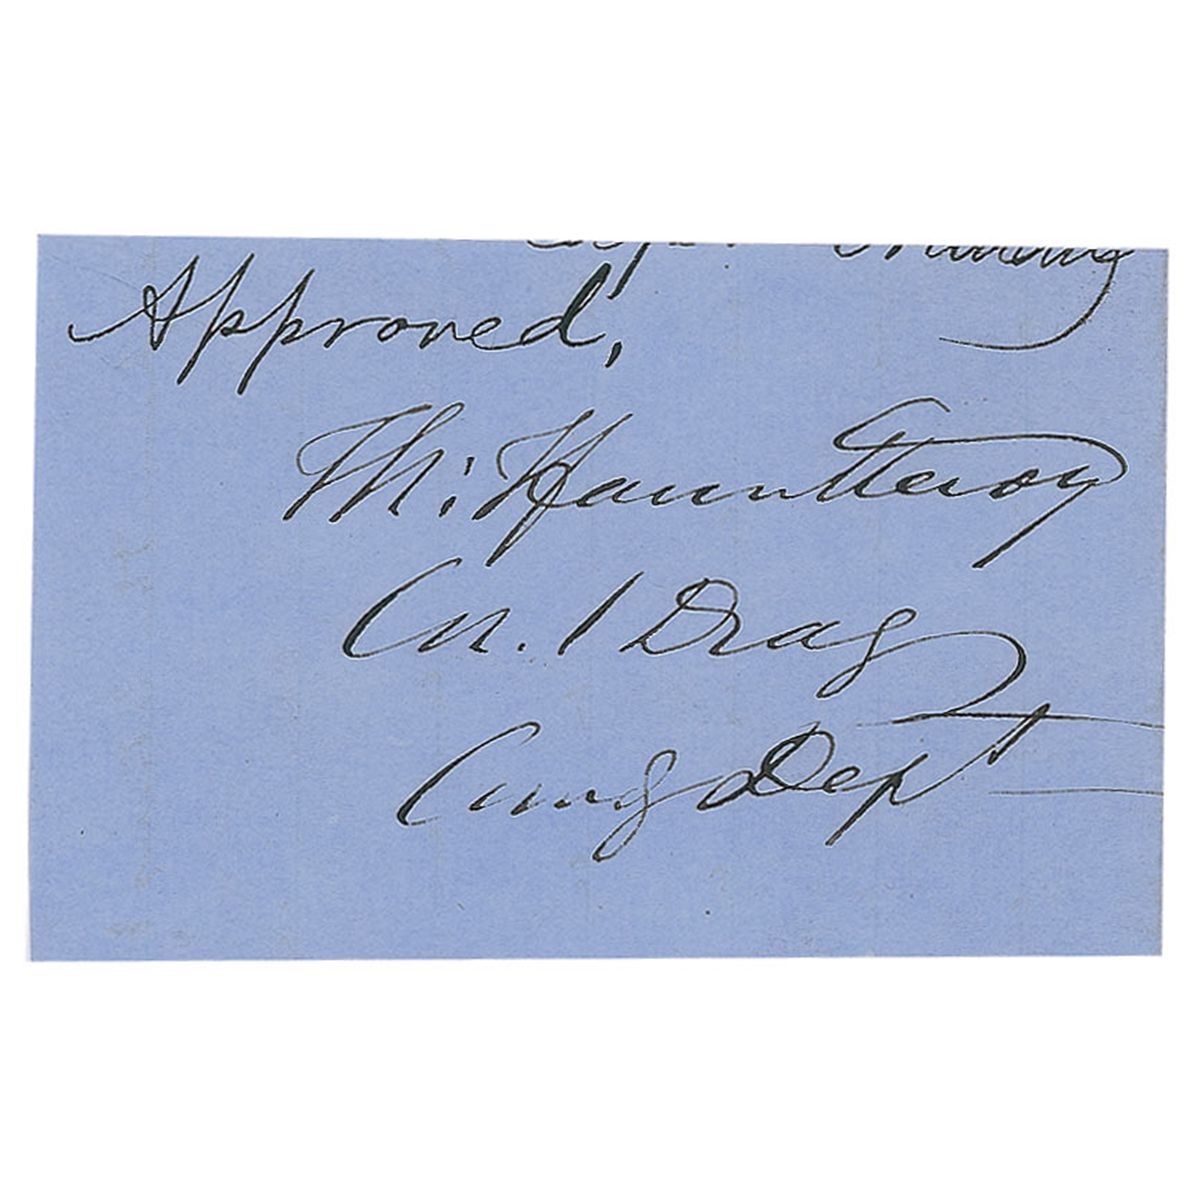 Approved,
Th: Fauntleroy
Col. 1 Drag
Comg Dept